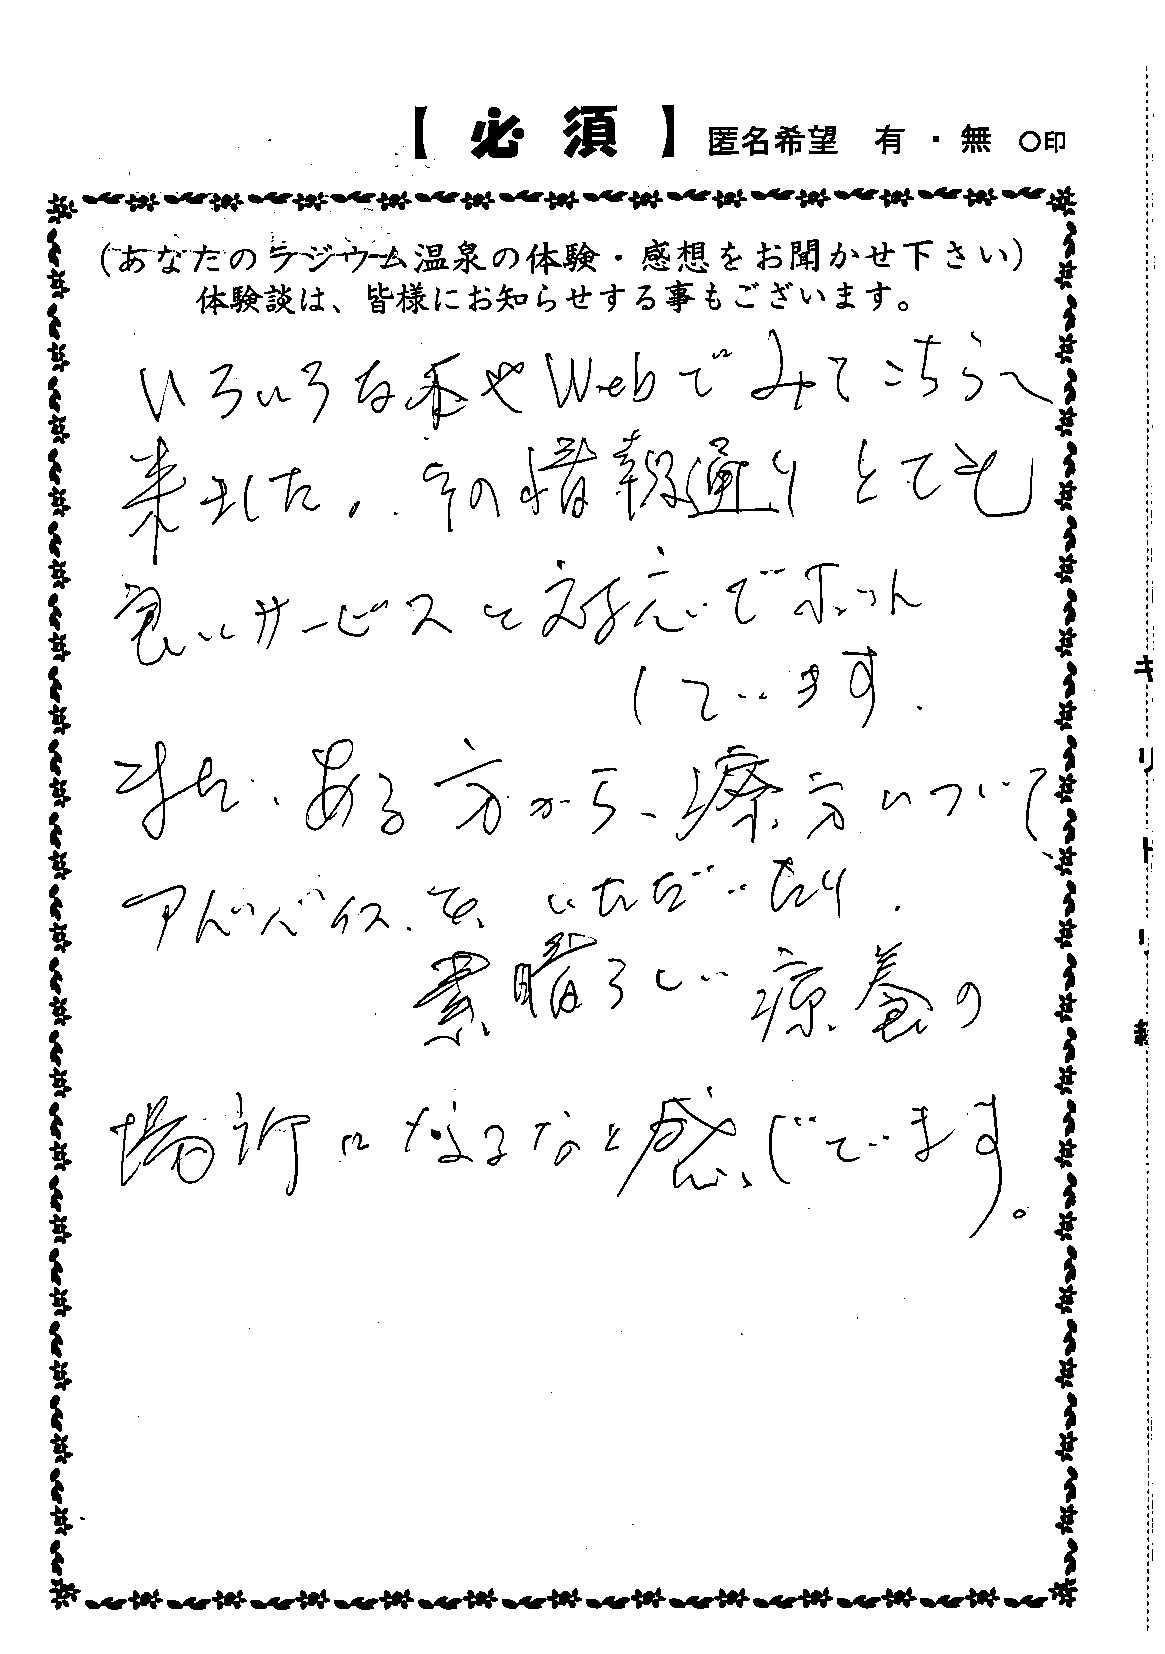 【 必 須 】 匿名希望 有 ・ 無 ○印
(あなたのラジウム温泉の体験・感想をお聞かせ下さい)
体験談は、皆様にお知らせする事もございます。
いろいろな本やWebでみてこちらへ
来ました。その情報通りとても
良いサービスと対応でホット
しています.
また、ある方から、療方について、
アドバイスを、いただいたり.
素晴らしい療養の
場所になるなと感じています。
キリトリ線